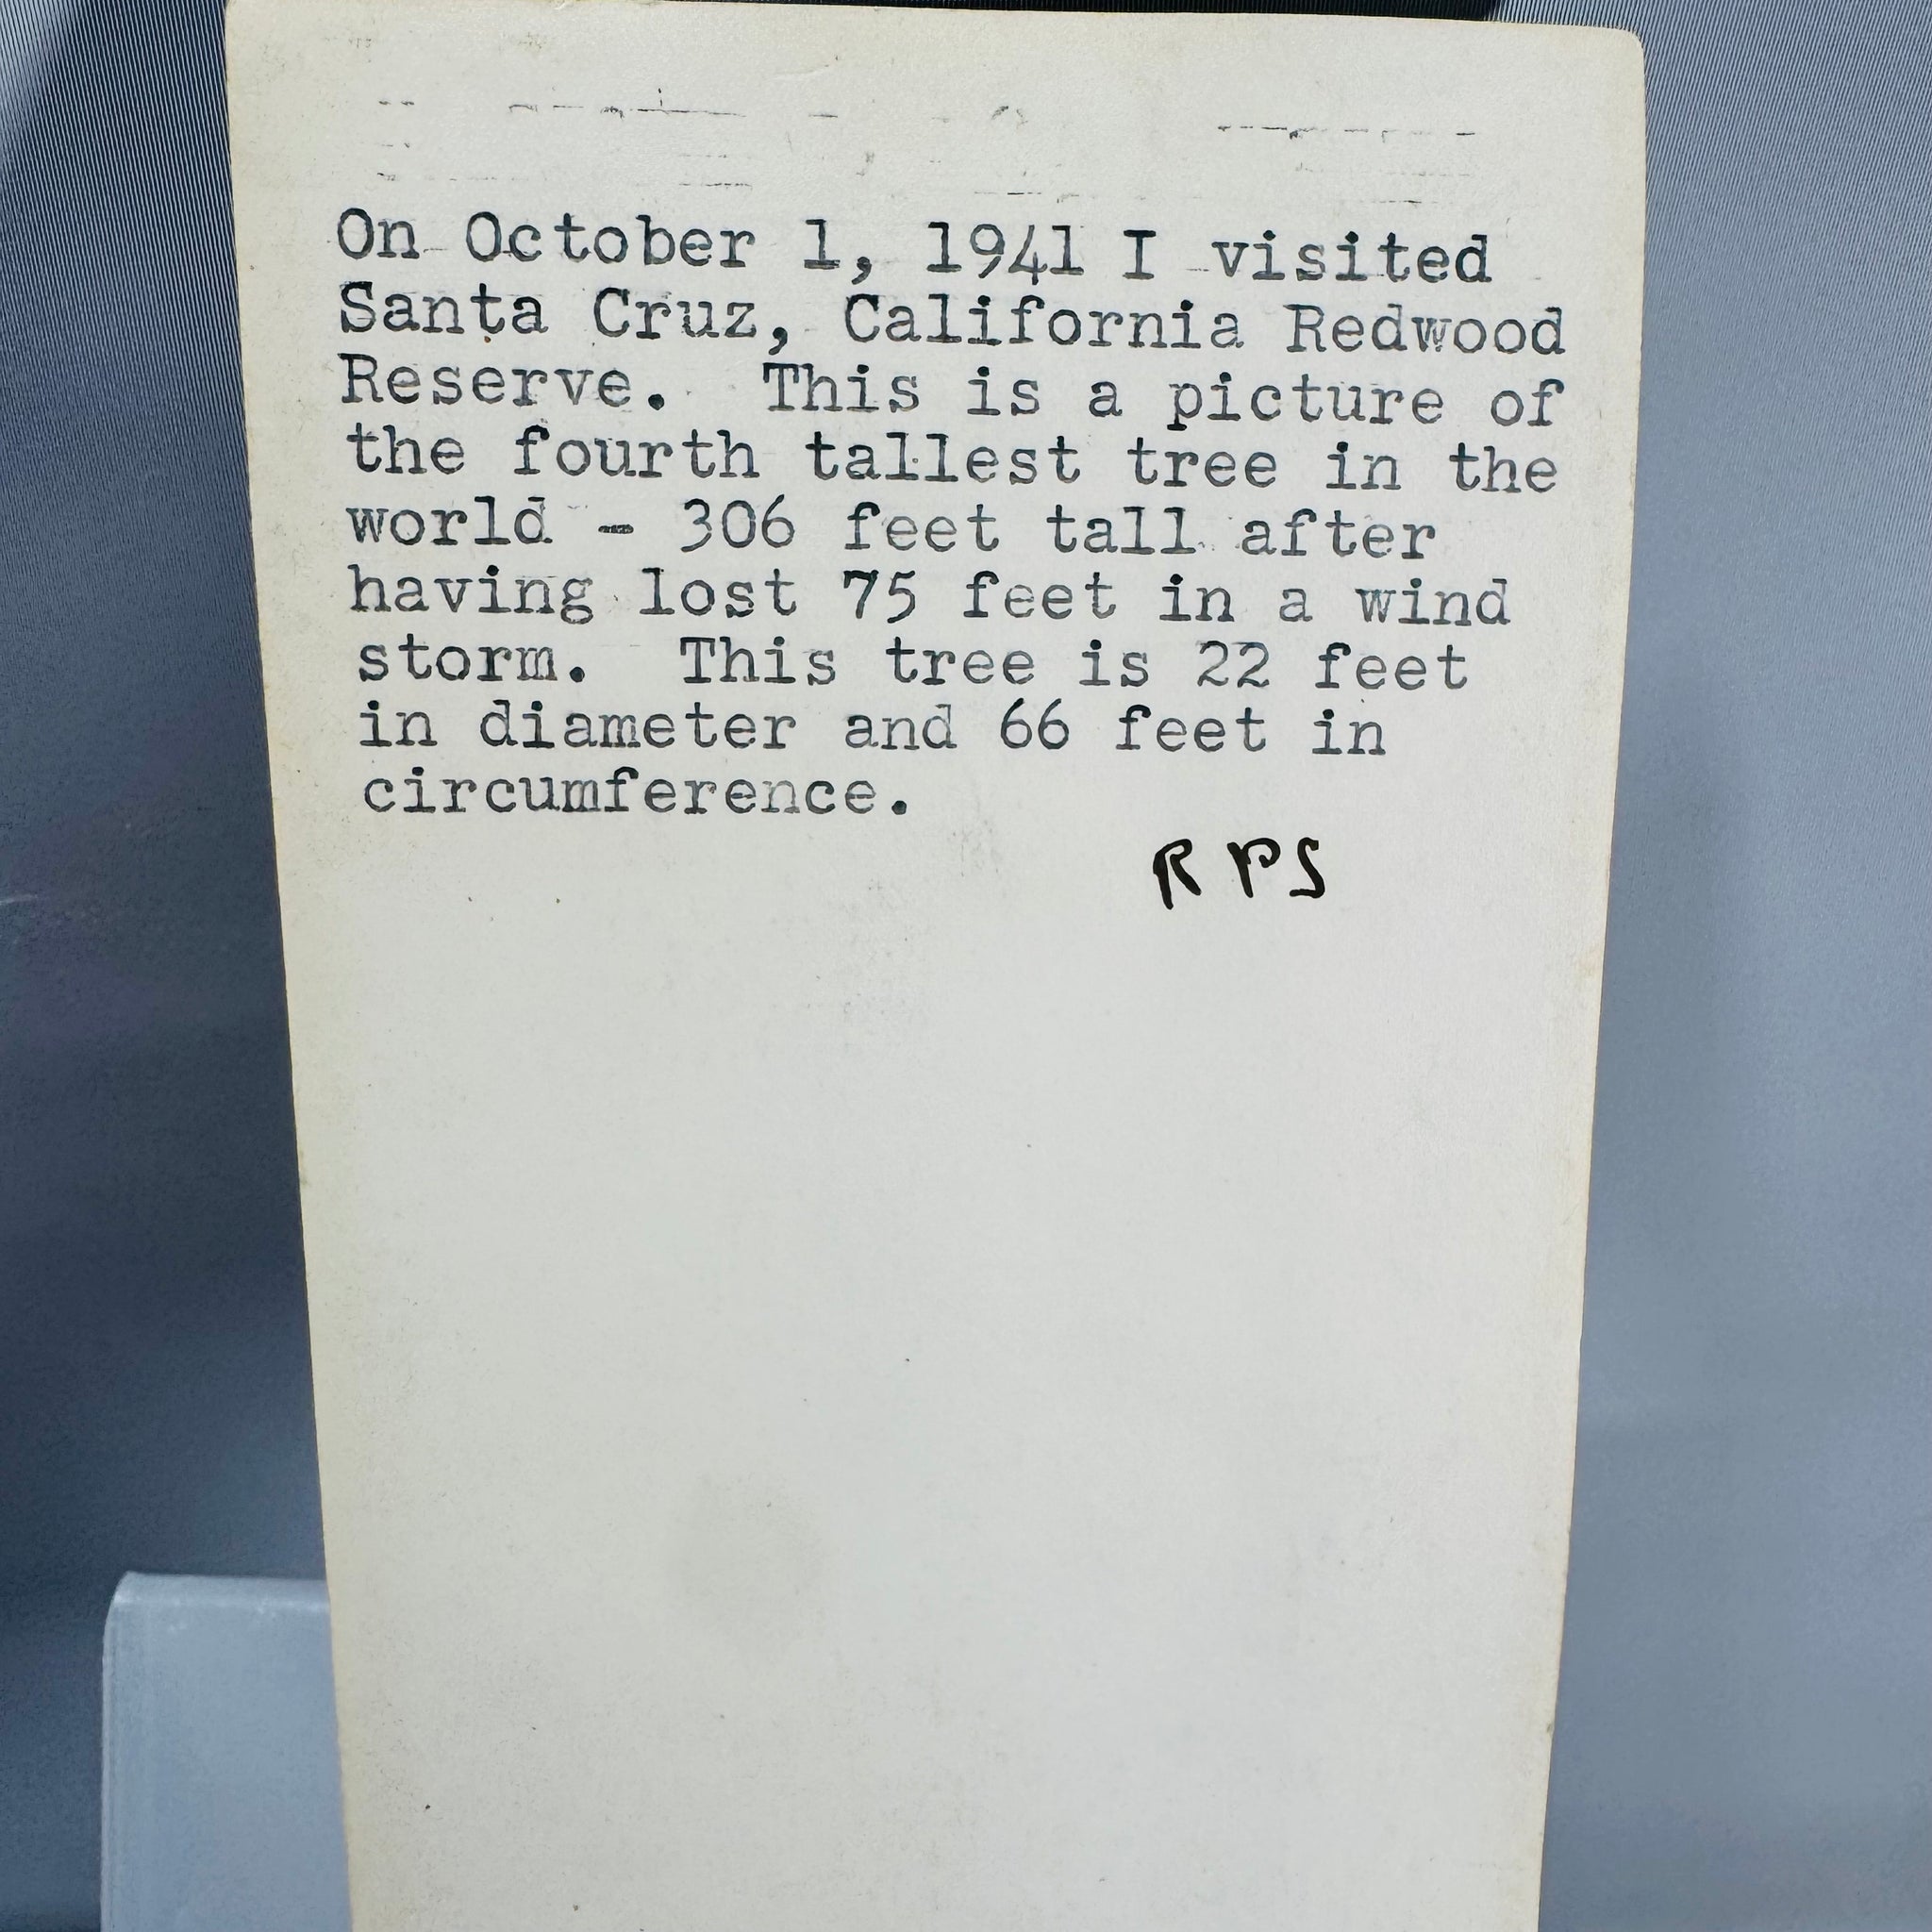 On October 1, 1941 I visited
Santa Cruz, California Redwood
Reserve. This is a picture of
the fourth tallest tree in the
world - 306 feet tall after
having lost 75 feet in a wind
storm. This tree is 22 feet
in diameter and 66 feet in
circumference.
RPS